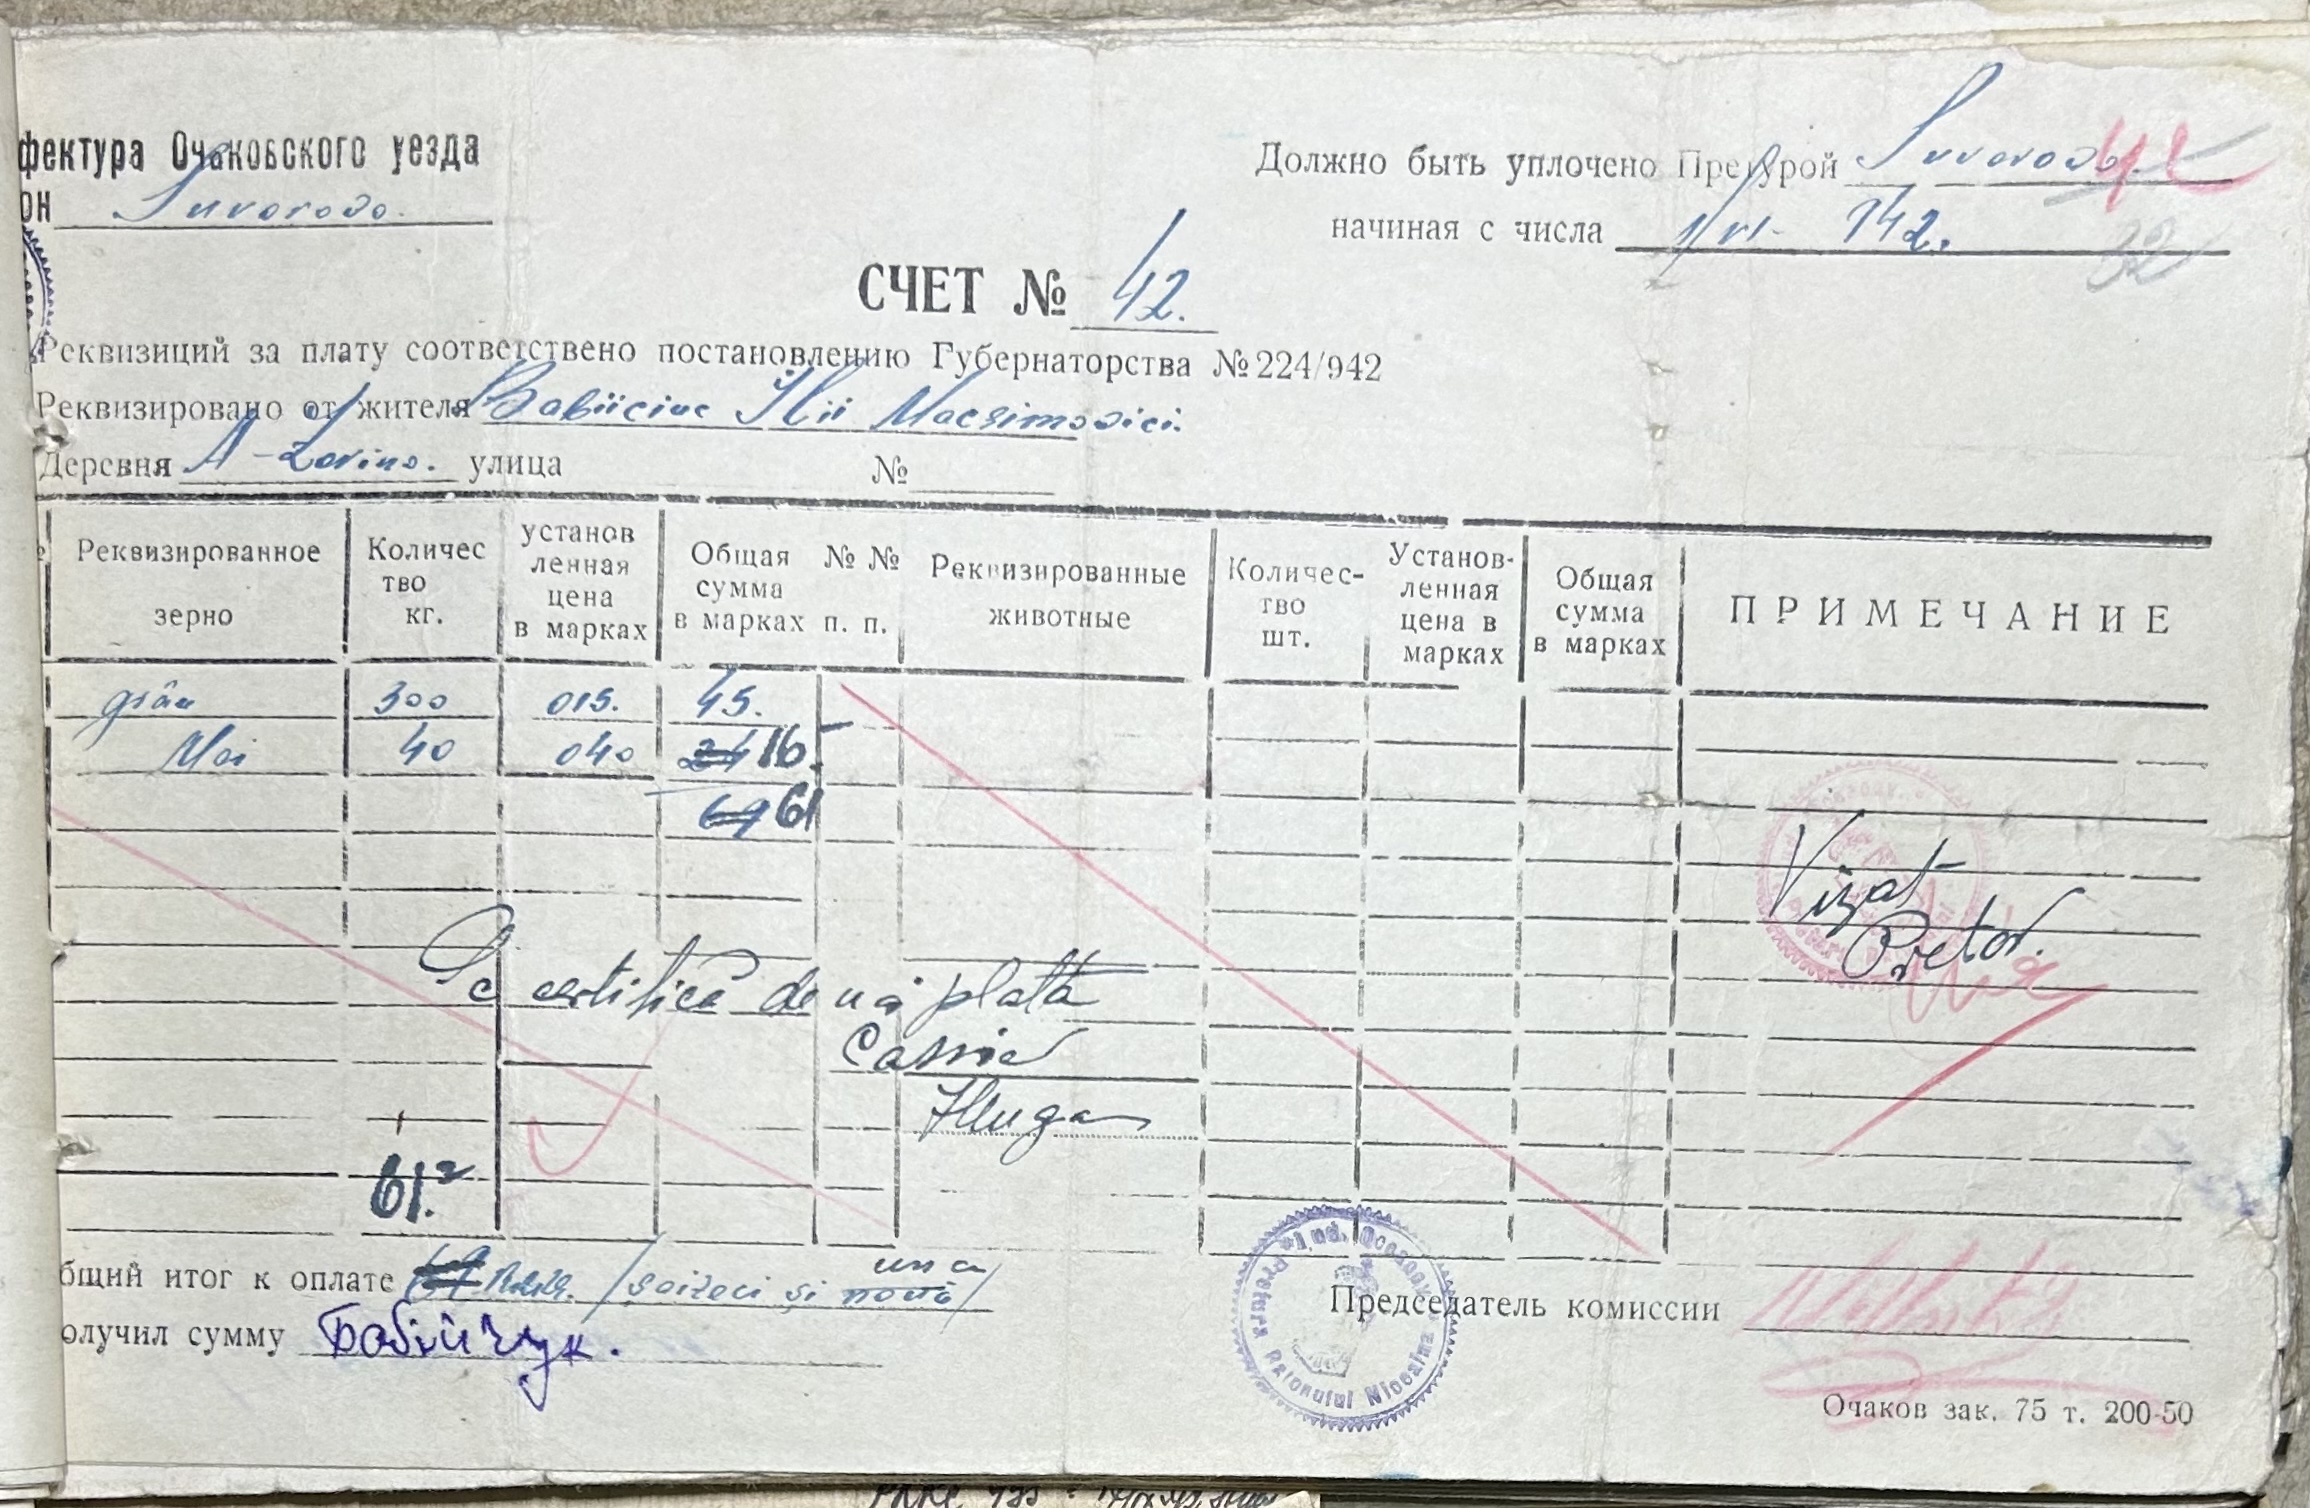 фектура Очаковского уезда
он Suvorovo.
Должно быть уплочено Претурой Suvorovo.
начиная с числа 1/VI- 942.
32
СЧЕТ № 42.
Реквизиций за плату соответствено постановлению Губернаторства № 224/942
Реквизировано от жителя Babiiciuc Ilii Macsimovici.
Деревня A-Zorino. улица №
Реквизированное зерно
Количес тво кг.
установ ленная цена в марках
Общая сумма в марках
№ № п. п.
Реквизированные животные
Количес- тво шт.
Установ- ленная цена в марках
Общая сумма в марках
ПРИМЕЧАНИЕ
grâu 300 015. 45.
Mei 40 040 24 16.
69 61
Vizat
Pretor.
Se certifică de noi plata
Casier
61.
бщий итог к оплате 69 /șaizeci și nouă una/
олучил сумму Бабийчук.
Председатель комиссии
Jud. Oceakov
Pretura Raionului
Очаков зак. 75 т. 200-50